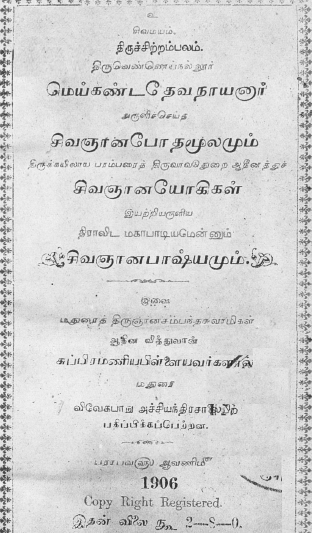 உ
சிவமயம்.
திருச்சிற்றம்பலம்.
திருவெண்ணெய்நல்லூர்
மெய்கண்டதேவநாயனார்
அருளிச்செய்த
சிவஞானபோதமூலமும்
திருக்கயிலாய பரம்பரைத் திருவாவடுதுறை ஆதீனத்துச்
சிவஞானயோகிகள்
இயற்றியருளிய
திராவிட மகாபாடியமென்னும்
சிவஞானபாஷ்யமும்.
இவை
மதுரைத் திருஞானசம்பந்தசுவாமிகள்
ஆதீன வித்துவான்
சுப்பிரமணியபிள்ளையவர்களால்
மதுரை
விவேகபாநு அச்சியந்திரசாலையிற்
பதிப்பிக்கப்பெற்றன.
பராபவ௵ ஆவணி௴
1906
Copy Right Registered.
இதன் விலை ரூ 2—8—0.